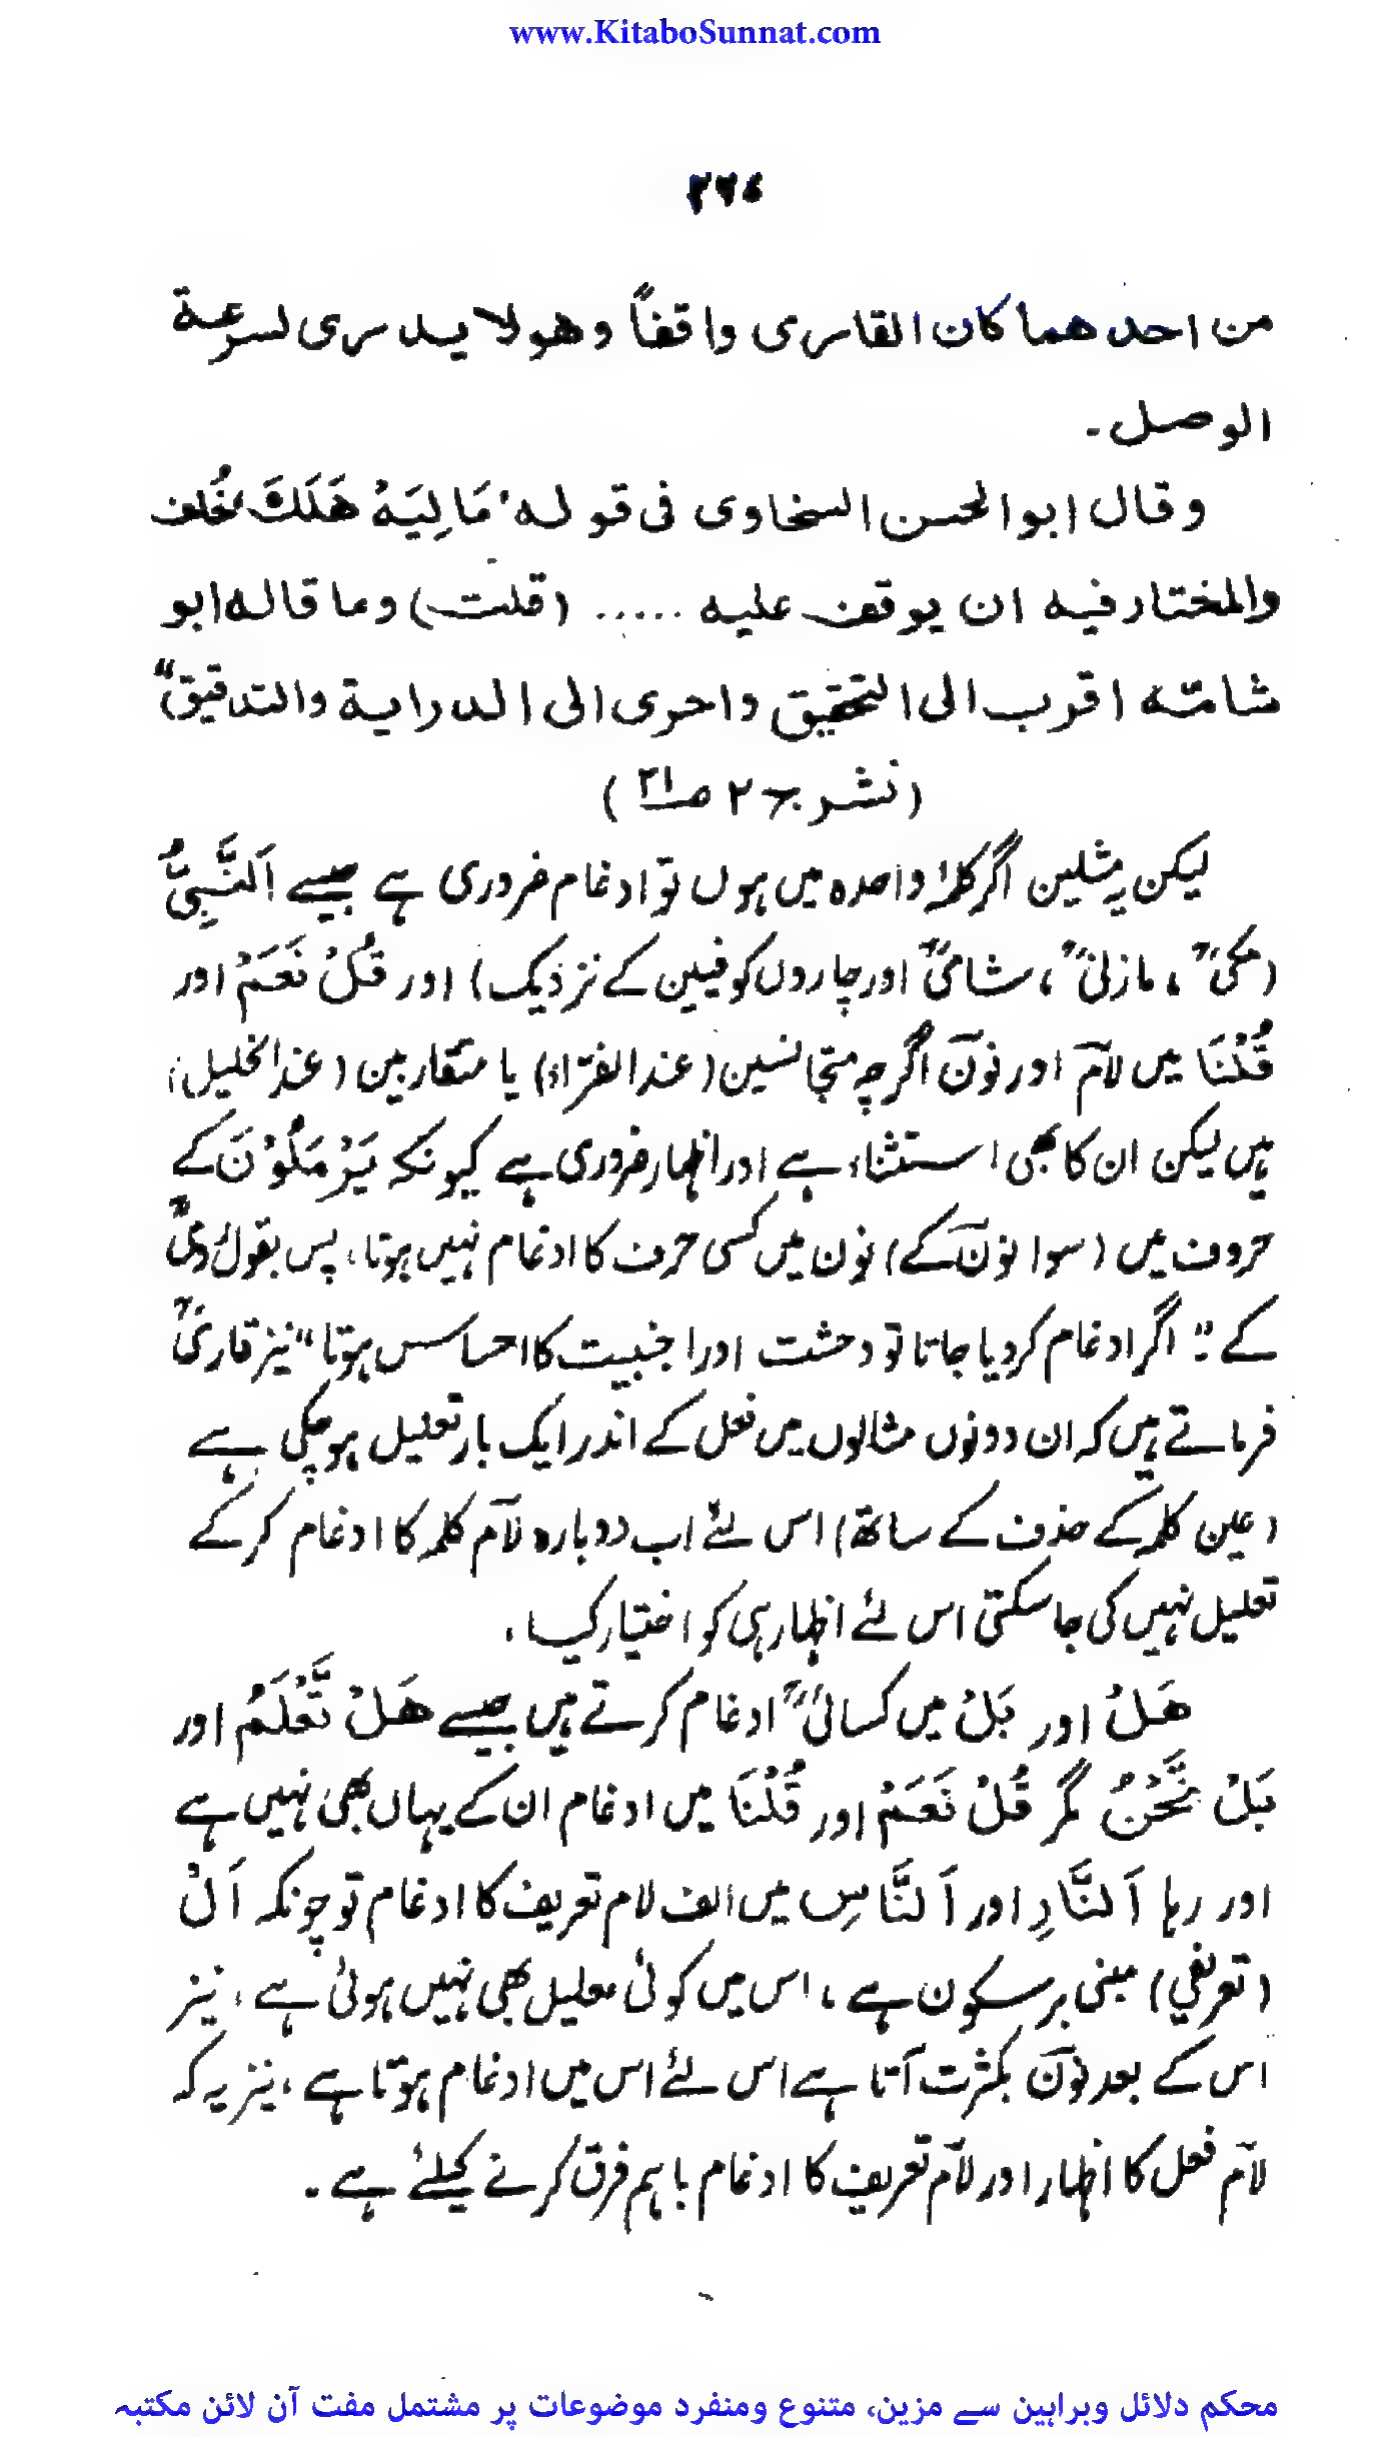 www.KitaboSunnat.com
۲۲۶
من احدهما كان القاری واقفاً وهو لا يدری لسرعة
الوصل۔
وقال ابوالحسن السخاوی فی قوله' مَالِيَهْ هَلَكَ خُلف
والمختار فيه ان يوقف عليه ..... (قلت) وما قاله ابو
شامة اقرب الی التحقيق واحری الی الدراية والتدقيق"
(نشر ج۲ ص۲۱)
لیکن یہ مثلین اگر کلمۂ واحدہ میں ہوں تو ادغام ضروری ہے جیسے اَلنَّبِیُّ
(مکیؒ، مازنیؒ، شامیؒ اور چاروں کوفیین کے نزدیک) اور قُلْ نَعَمْ اور
قُلْنَا میں لآم اور نوٓن اگرچہ متجانسین (عند الفرّاء) یا متقاربین (عند الخلیل)
ہیں لیکن ان کا بھی استثناء ہے اور اظہار ضروری ہے کیونکہ یَرْمَلُوْنَ کے
حروف میں (سوا نوٓن کے) نون میں کسی حرف کا ادغام نہیں ہوتا، پس بقول دانیؒ
کے: " اگر ادغام کر دیا جاتا تو وحشت اور اجنبیت کا احساس ہوتا" نیز قاریؒ
فرماتے ہیں کہ ان دونوں مثالوں میں فعل کے اندر ایک بار تعلیل ہو چکی ہے
(عین کلمہ کے حذف کے ساتھ) اس لئے اب دوبارہ لآم کلمہ کا ادغام کر کے
تعلیل نہیں کی جا سکتی اس لئے اظہار ہی کو اختیار کیا،
هَلْ اور بَلْ میں کسائیؒ ادغام کرتے ہیں جیسے هَلْ تَّعْلَمُ اور
بَلْ نَّحْنُ مگر قُلْ نَعَمْ اور قُلْنَا میں ادغام ان کے یہاں بھی نہیں ہے
اور رہا اَلنَّارِ اور اَلنَّاسِ میں الف لام تعریف کا ادغام تو چونکہ اَلْ
(تعریفی) مبنی بر سکون ہے، اس میں کوئی تعلیل بھی نہیں ہوئی ہے، نیز
اس کے بعد نوٓن بکثرت آتا ہے اس لئے اس میں ادغام ہوتا ہے، نیز یہ کہ
لآم فعل کا اظہار اور لآم تعریف کا ادغام باہم فرق کرنے کیلئے ہے۔
محکم دلائل وبراہین سے مزین، متنوع ومنفرد موضوعات پر مشتمل مفت آن لائن مکتبہ